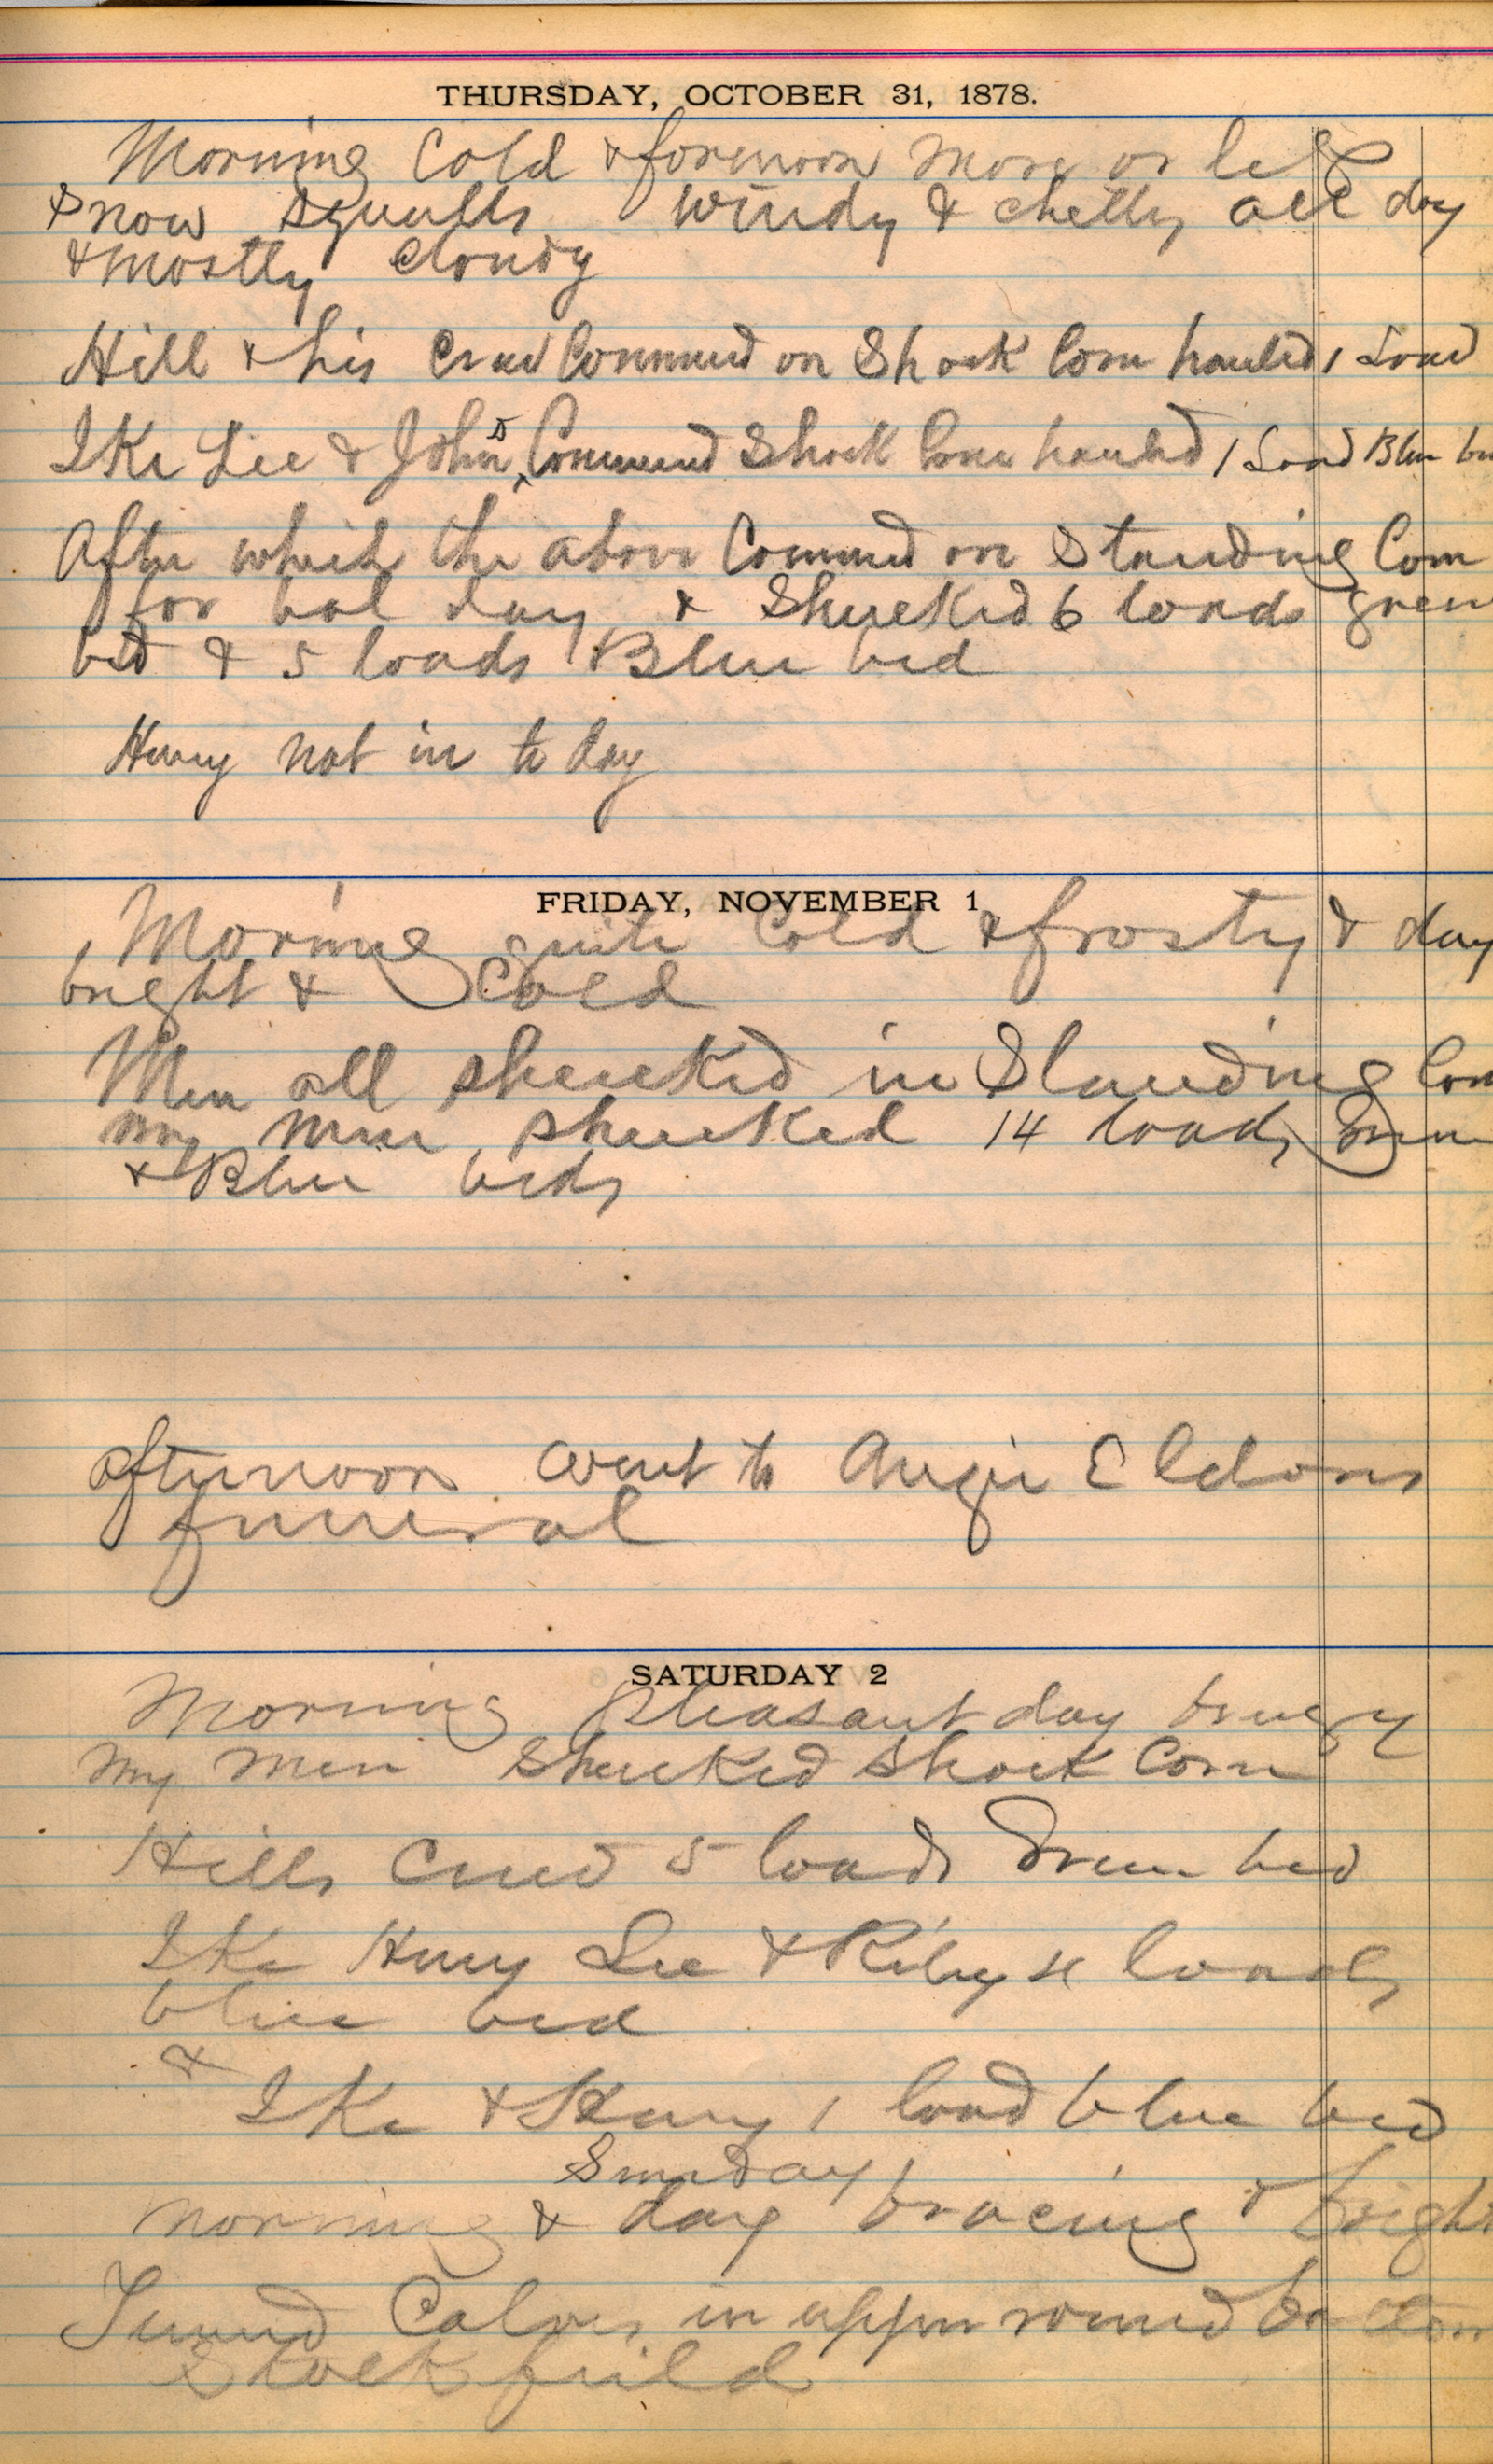 THURSDAY, OCTOBER 31, 1878.
Morning Cold & forenoon more or less
snow squalls windy & chilly all day
& mostly cloudy
Hill & his Crew Commend on Shock Corn hauled 1 Load
Ike Lee & John Commend Shock Corn hauled 1 Load Blue
After which the above Commd on Standing Corn
for bal day & Shucked 6 loads green
bed & 5 loads Blue bed
Henry not in to day
FRIDAY, NOVEMBER 1
Morning quite Cold & frosty & day
bright & Cold
Men all shucked in Standing Corn
my men shucked 14 loads Green
& Blue beds
afternoon went to Angie Eldons
funeral
SATURDAY 2
Morning pleasant day
My men Shucked Shock Corn
Hills Crew 5 loads Green bed
Ike Henry Lee & Riley 4 loads
blue bed
&
Ike & Henry 1 load blue bed
Sunday
Morning & day bracing & bright
Turned Calves in upper round bottom
Stock field